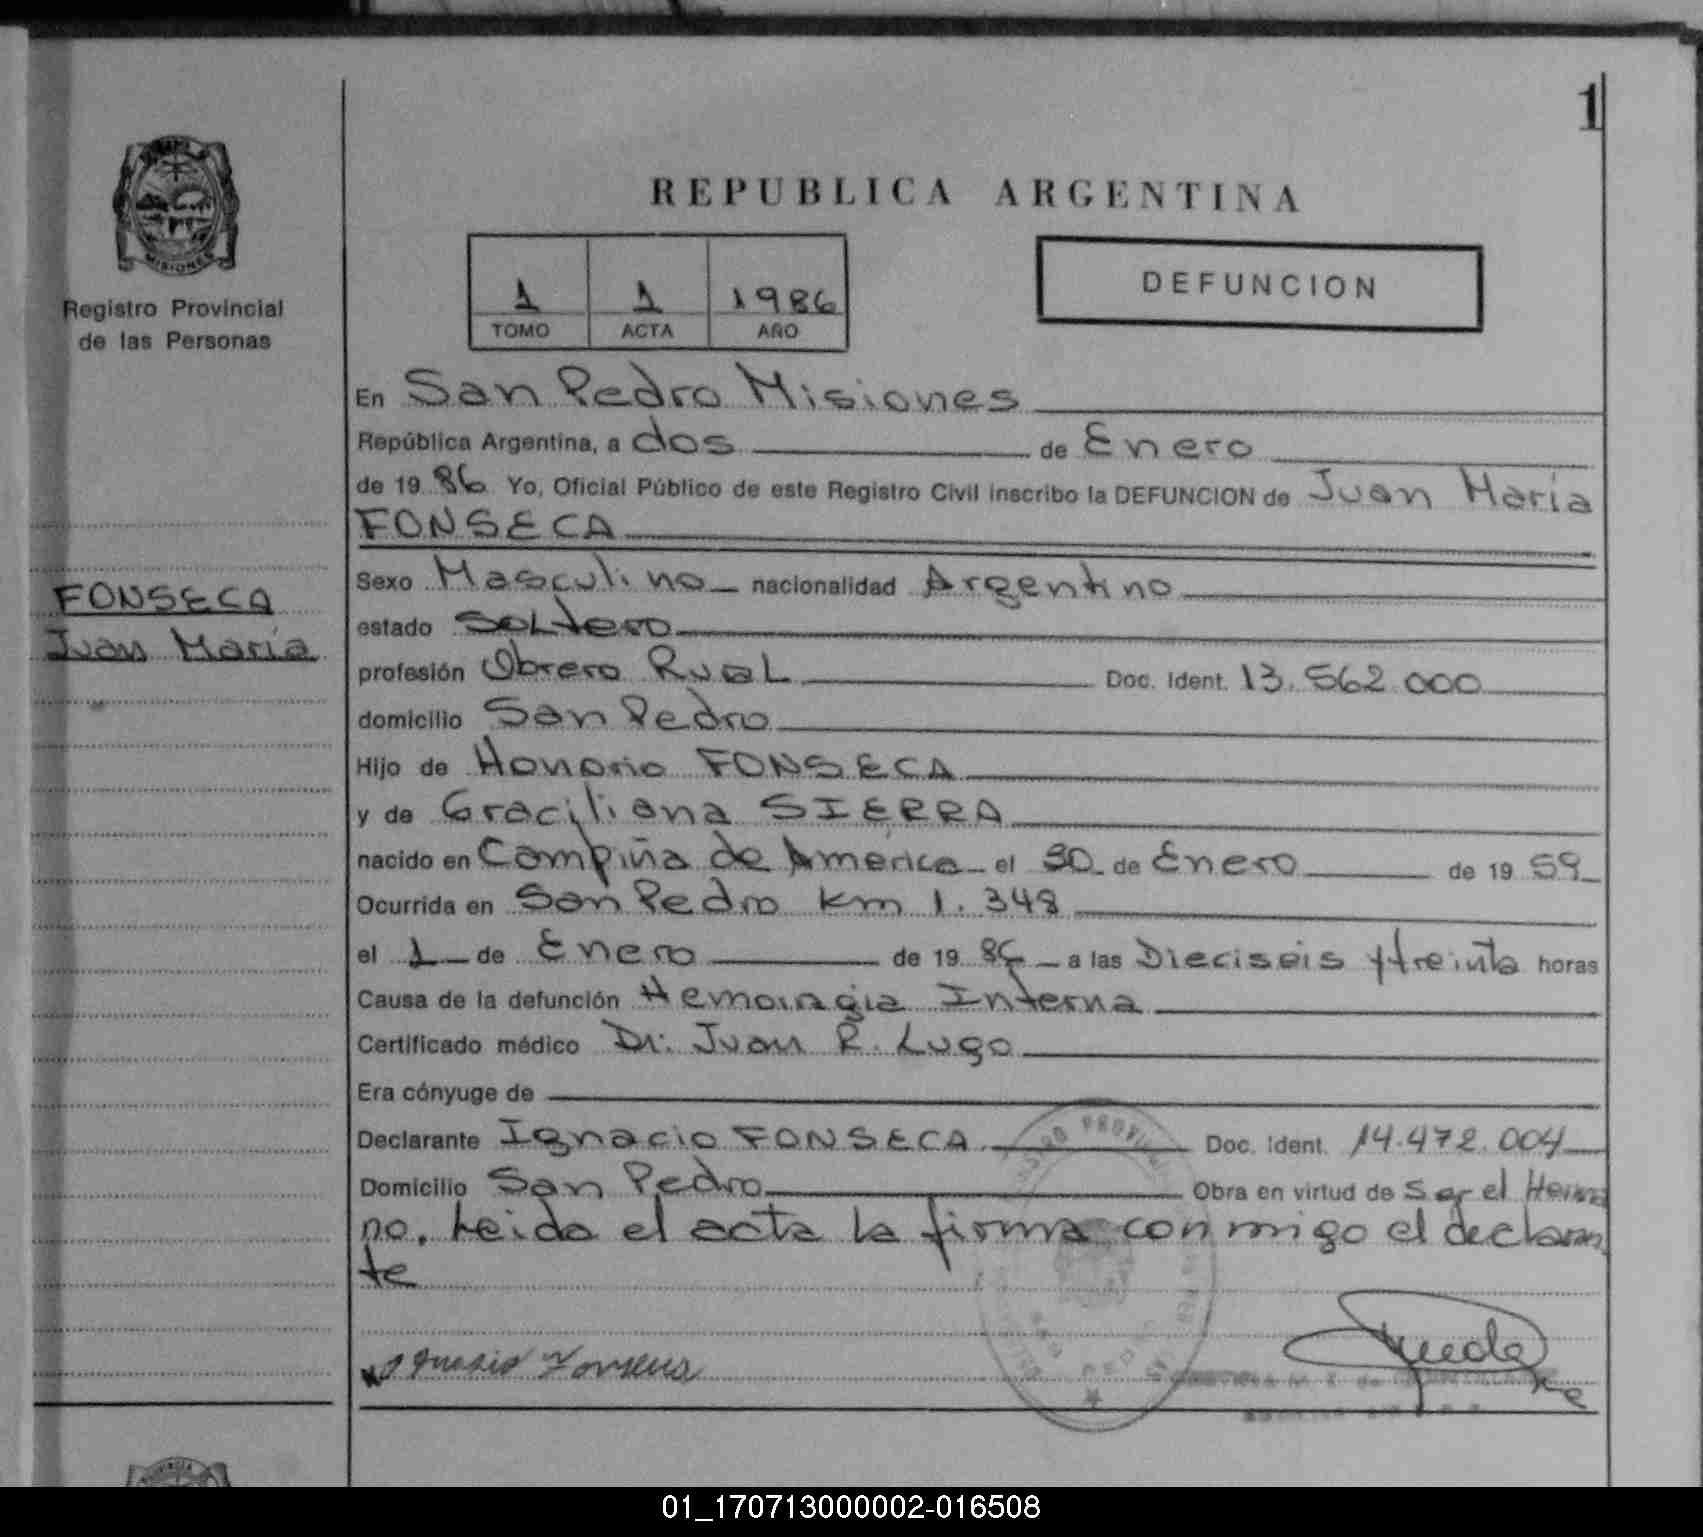 1
MISIONES
Registro Provincial
de las Personas
REPUBLICA ARGENTINA
1 1 1986
TOMO ACTA AÑO
DEFUNCION
En San Pedro Misiones
República Argentina, a dos de Enero
de 19 86 Yo, Oficial Público de este Registro Civil inscribo la DEFUNCION de Juan María
FONSECA
FONSECA
Juan María
Sexo Masculino nacionalidad Argentino
estado Soltero
profesión Obrero Rual Doc. Ident. 13.562.000
domicilio San Pedro
Hijo de Honorio FONSECA
y de Graciliana SIERRA
nacido en Campiña de América el 30 de Enero de 19 59
Ocurrida en San Pedro Km 1.348
el 1 de Enero de 19 86 a las Dieciseis y treinta horas
Causa de la defunción Hemorragia Interna
Certificado médico Dr. Juan R. Lugo
Era cónyuge de
Declarante Ignacio FONSECA Doc. Ident. 14.472.004
Domicilio San Pedro Obra en virtud de Ser el Herma
no. Leida el acta la firma conmigo el declaran
te
PROVINCIA
01_170713000002-016508